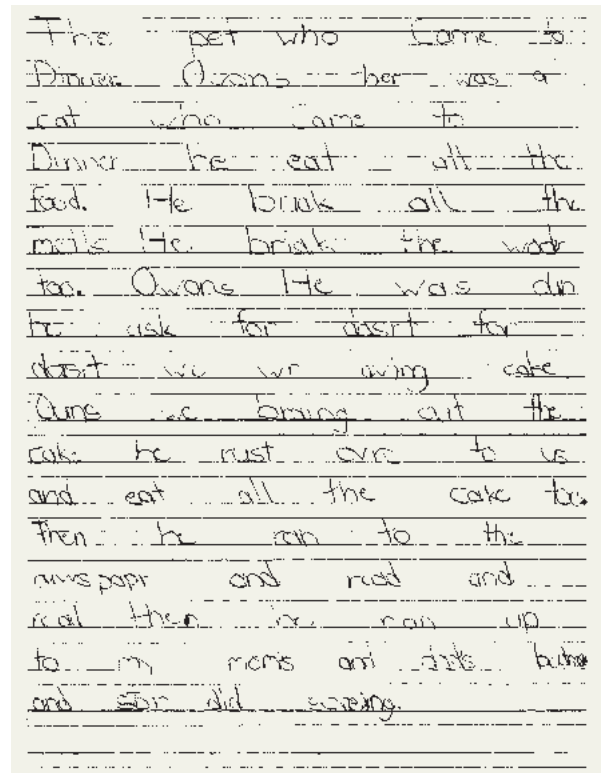 The pet who came to
Dinner. Owans ther was a
cat who came to
Dinner he eat all the
food. He briak all the
He briak the
too. Owans He was din
he ask for dosrt for
dosrt we wr aving cake
Owns we briung out the
cake he rust ovre to us
and eat all the cake too.
Then he ran to the
nuwspapr and read and
read then he ran up
to my moms and dads
and did